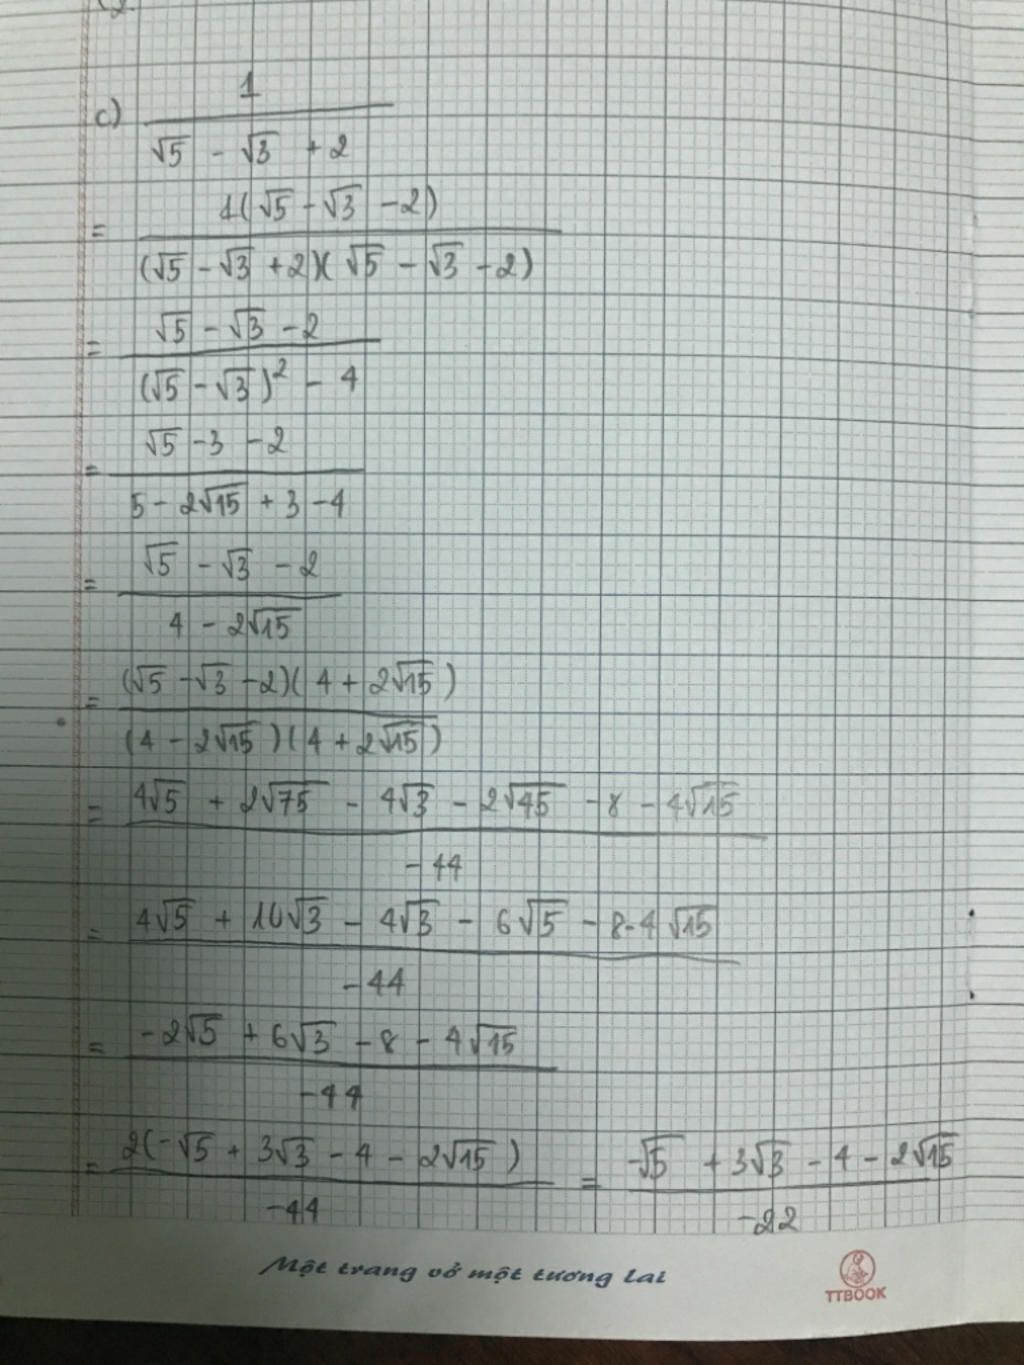 c) 1
√5 - √3 + 2
= 1(√5 - √3 - 2)
(√5 - √3 + 2)(√5 - √3 - 2)
= √5 - √3 - 2
(√5 - √3)² - 4
= √5 - 3 - 2
5 - 2√15 + 3 - 4
= √5 - √3 - 2
4 - 2√15
= (√5 - √3 - 2)(4 + 2√15)
(4 - 2√15)(4 + 2√15)
= 4√5 + 2√75 - 4√3 - 2√45 - 8 - 4√15
-44
= 4√5 + 10√3 - 4√3 - 6√5 - 8 - 4√15
-44
= -2√5 + 6√3 - 8 - 4√15
-44
= 2(-√5 + 3√3 - 4 - 2√15) = -√5 + 3√3 - 4 - 2√15
-44 -22
Một trang vở một tương lai
TTBOOK